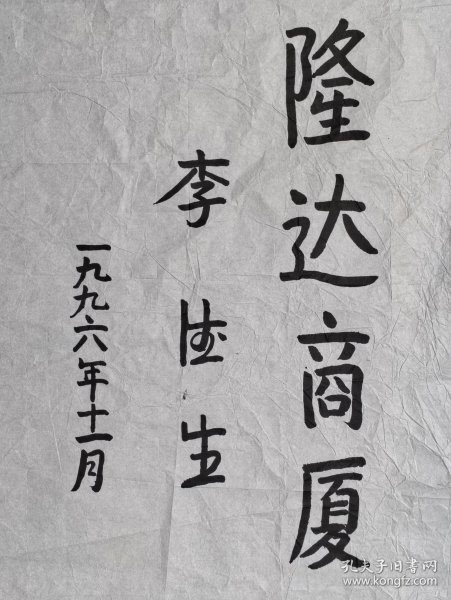 隆达商厦
李德生
一九九六年十一月
孔夫子旧书网
www.kongfz.com